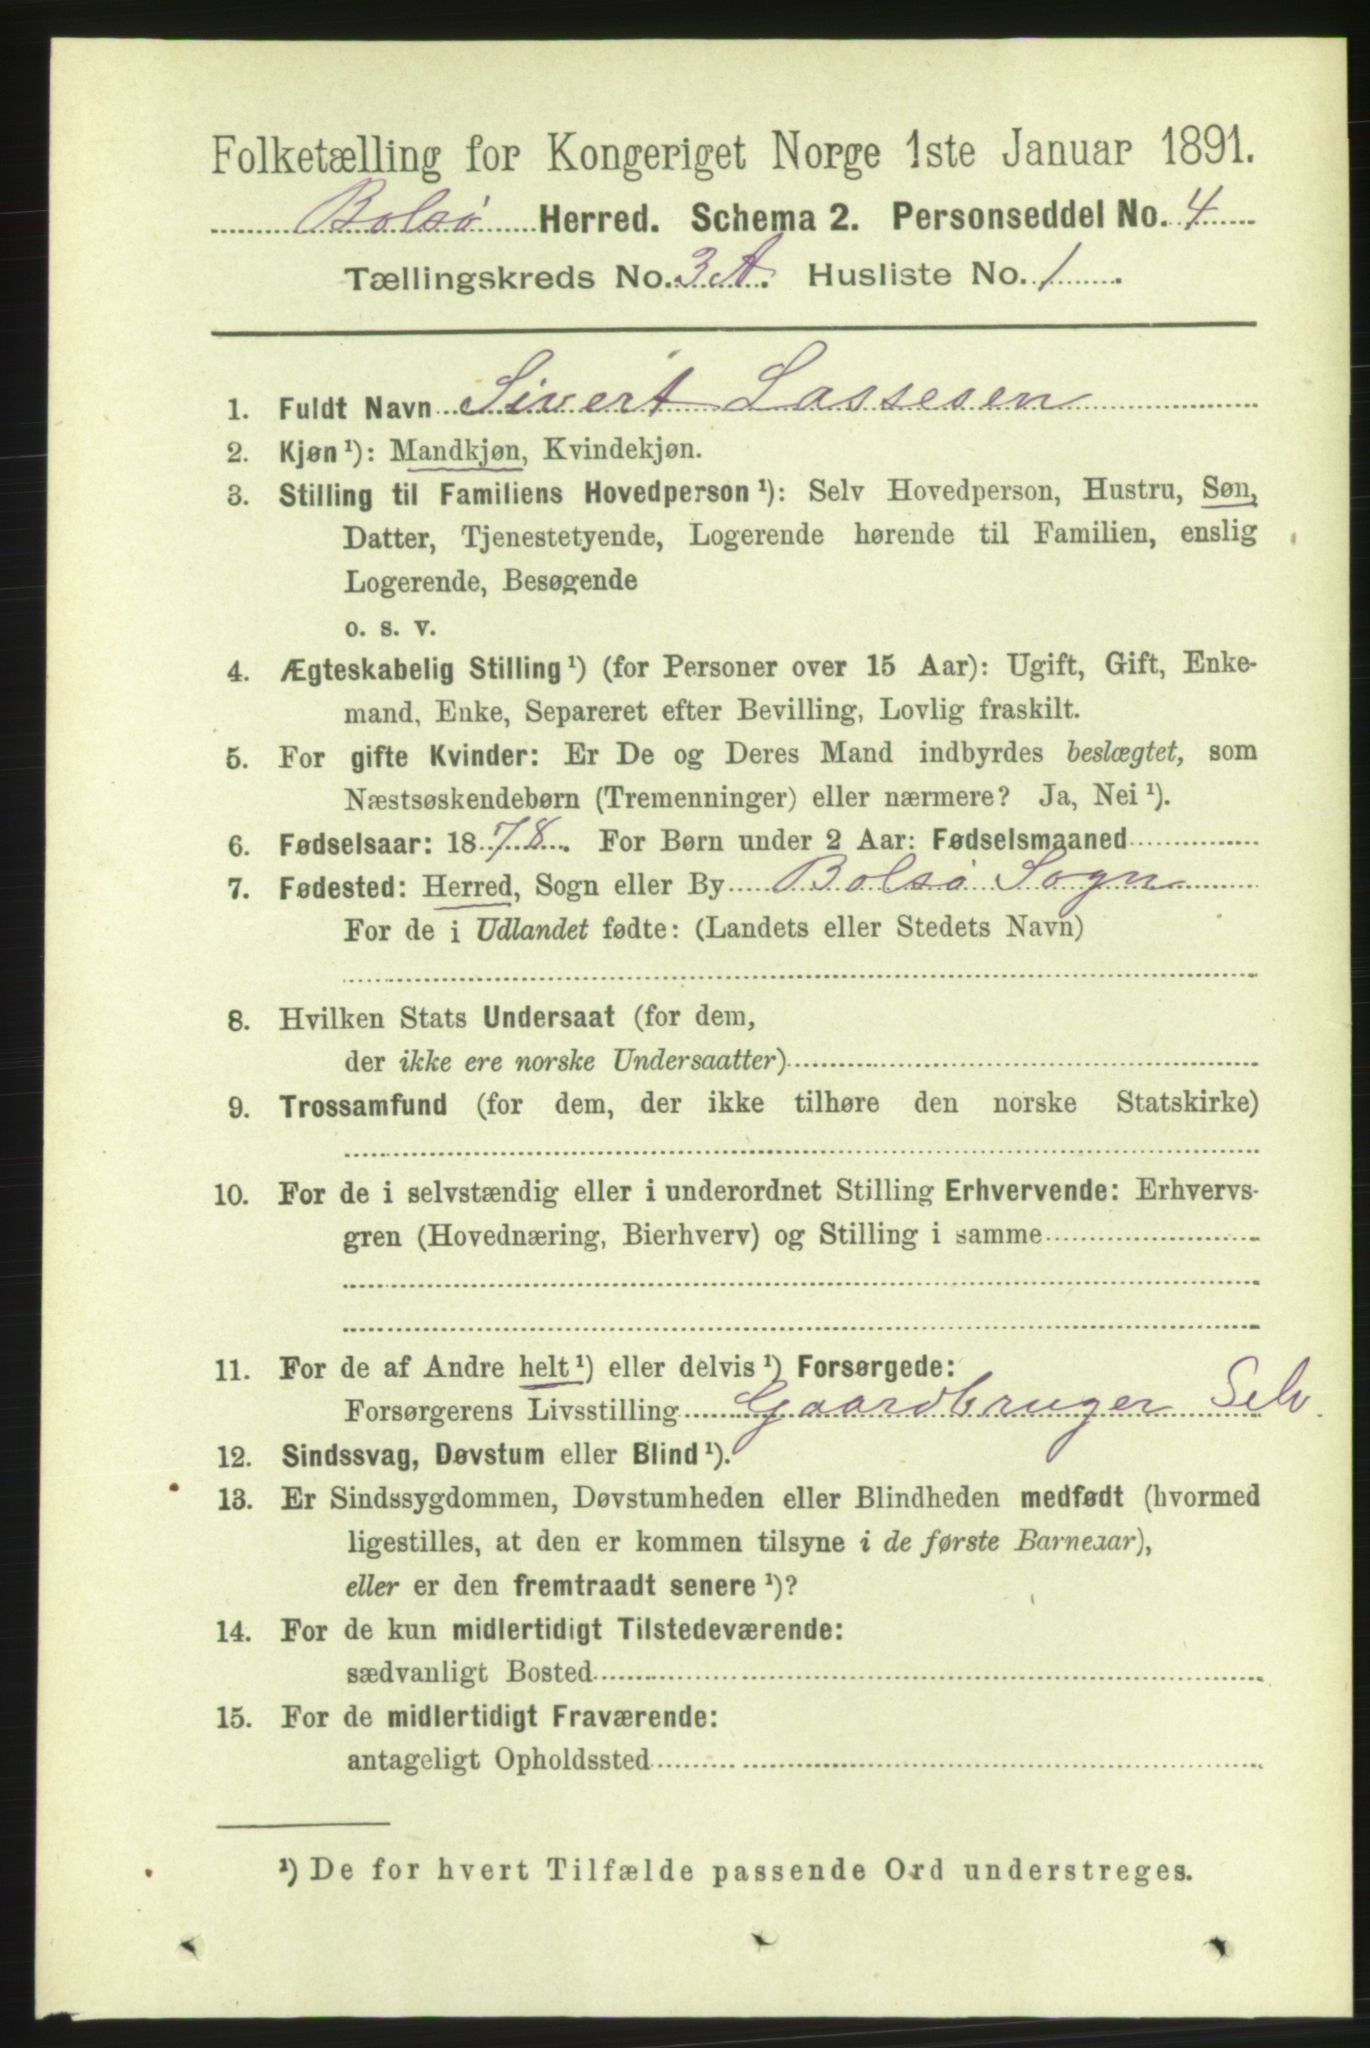 Folketælling for Kongeriget Norge 1ste Januar 1891.
Bolsø Herred. Schema 2. Personseddel No. 4
Tællingskreds No. 3 A. Husliste No. 1.
1. Fuldt Navn Sivert Lassesen
2. Kjøn ¹): Mandkjøn, Kvindekjøn.
3. Stilling til Familiens Hovedperson ¹): Selv Hovedperson, Hustru, Søn,
Datter, Tjenestetyende, Logerende hørende til Familien, enslig
Logerende, Besøgende
o. s. v.
4. Ægteskabelig Stilling ¹) (for Personer over 15 Aar): Ugift, Gift, Enke-
mand, Enke, Separeret efter Bevilling, Lovlig fraskilt.
5. For gifte Kvinder: Er De og Deres Mand indbyrdes beslægtet, som
Næstsøskendebørn (Tremenninger) eller nærmere? Ja, Nei ¹).
6. Fødselsaar: 1878. For Børn under 2 Aar: Fødselsmaaned
7. Fødested: Herred, Sogn eller By Bolsø Sogn
For de i Udlandet fødte: (Landets eller Stedets Navn)
8. Hvilken Stats Undersaat (for dem,
der ikke ere norske Undersaatter)
9. Trossamfund (for dem, der ikke tilhøre den norske Statskirke)
10. For de i selvstændig eller i underordnet Stilling Erhvervende: Erhvervs-
gren (Hovednæring, Bierhverv) og Stilling i samme
11. For de af Andre helt ¹) eller delvis ¹) Forsørgede:
Forsørgerens Livsstilling Gaardbruger Selv.
12. Sindssvag, Døvstum eller Blind ¹).
13. Er Sindssygdommen, Døvstumheden eller Blindheden medfødt (hvormed
ligestilles, at den er kommen tilsyne i de første Barneaar),
eller er den fremtraadt senere ¹)?
14. For de kun midlertidigt Tilstedeværende:
sædvanligt Bosted
15. For de midlertidigt Fraværende:
antageligt Opholdssted
¹) De for hvert Tilfælde passende Ord understreges.